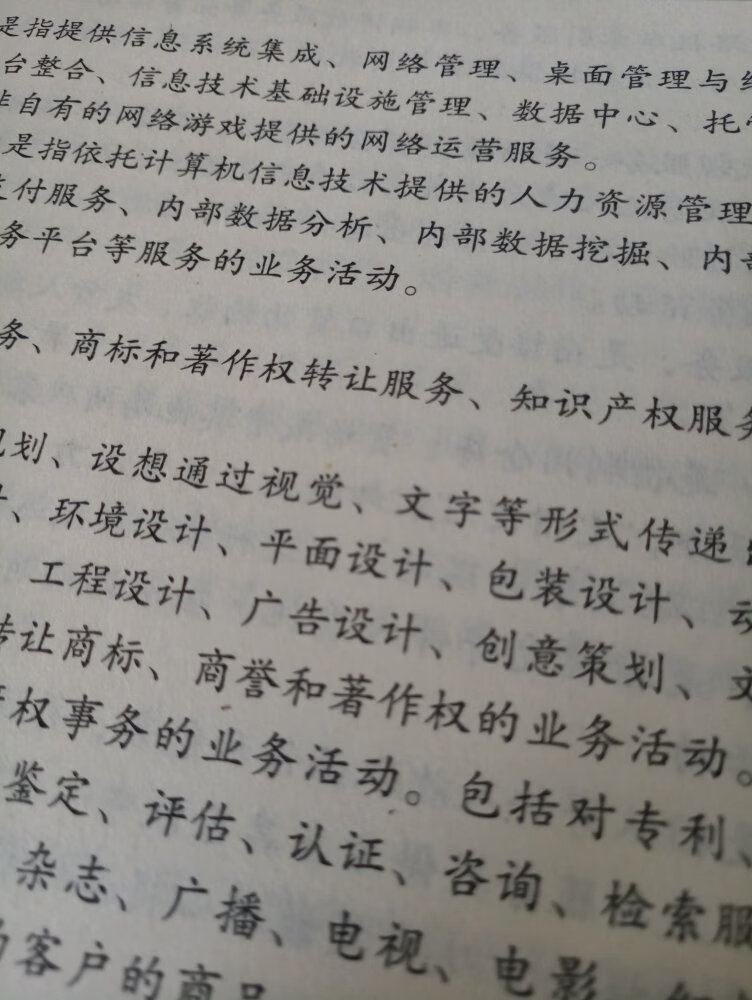 是指提供信息系统集成、网络管理、桌面管理与
台整合、信息技术基础设施管理、数据中心、托
非自有的网络游戏提供的网络运营服务。
是指依托计算机信息技术提供的人力资源管理
支付服务、内部数据分析、内部数据挖掘、内部
务平台等服务的业务活动。
务、商标和著作权转让服务、知识产权服务
划、设想通过视觉、文字等形式传递
、环境设计、平面设计、包装设计、动
、工程设计、广告设计、创意策划、文
转让商标、商誉和著作权的业务活动。
产权事务的业务活动。包括对专利、
鉴定、评估、认证、咨询、检索服
杂志、广播、电视、电影
的客户的商品